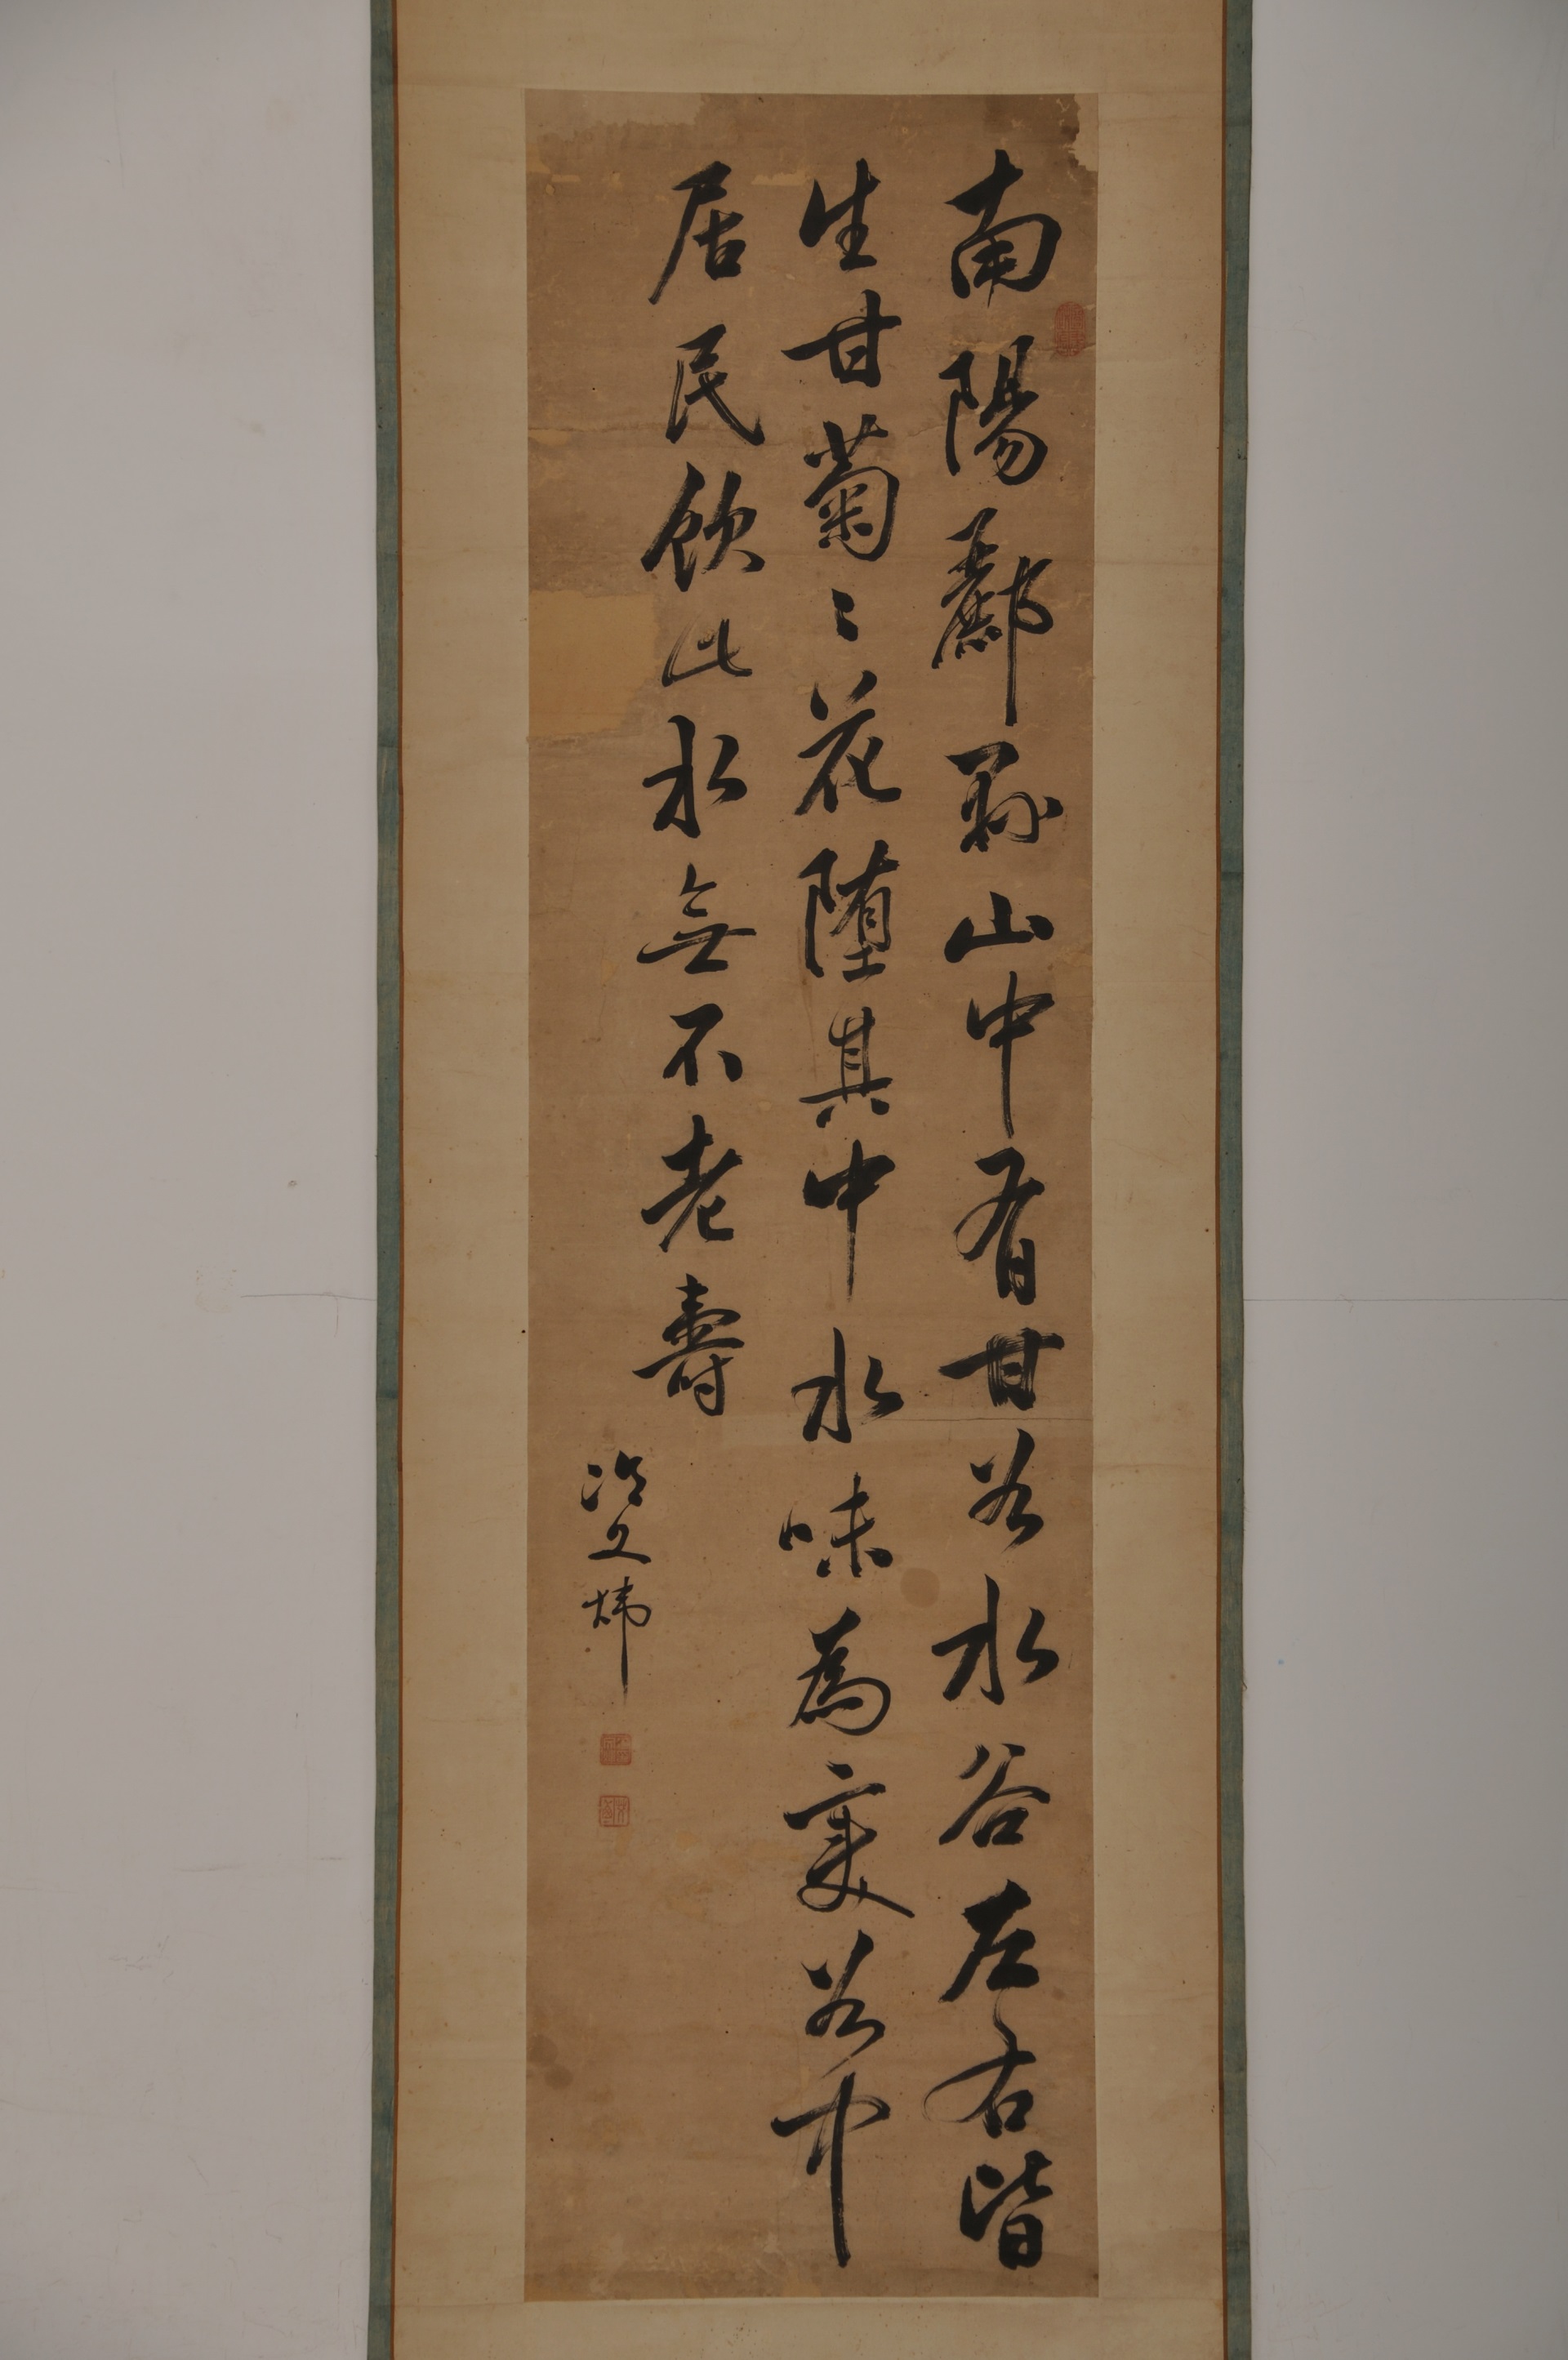 南陽酈縣山中有甘谷水谷左右皆
生甘菊〻花墮其中水味為變谷中
居民飲此水無不老壽
冷文煒